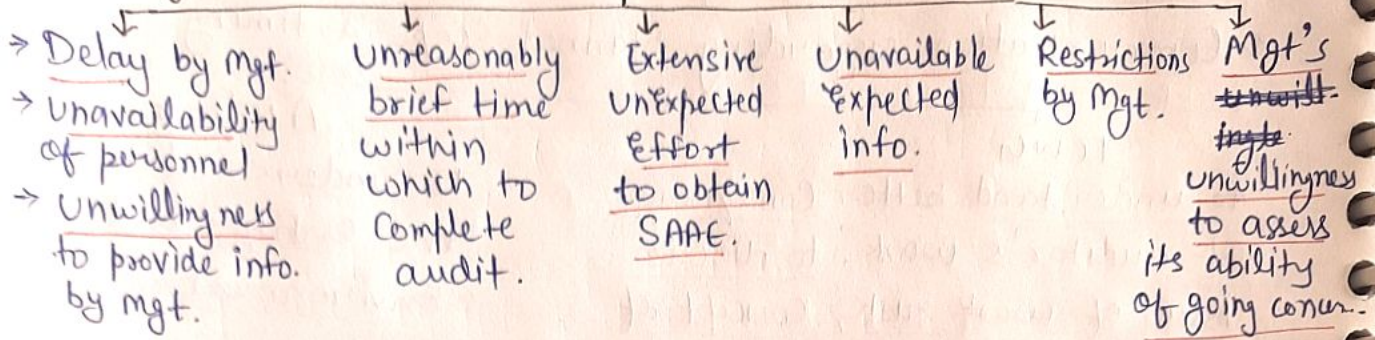 → Delay by mgt.
→ unavailability
of personnel
→ unwillingness
to provide info.
by mgt.
unreasonably
brief time
within
which to
complete
audit.
Extensive
unexpected
effort
to obtain
SAAE.
unavailable
expected
info.
Restrictions
by mgt.
Mgt's
unwillingness
to assess
its ability
of going concern.